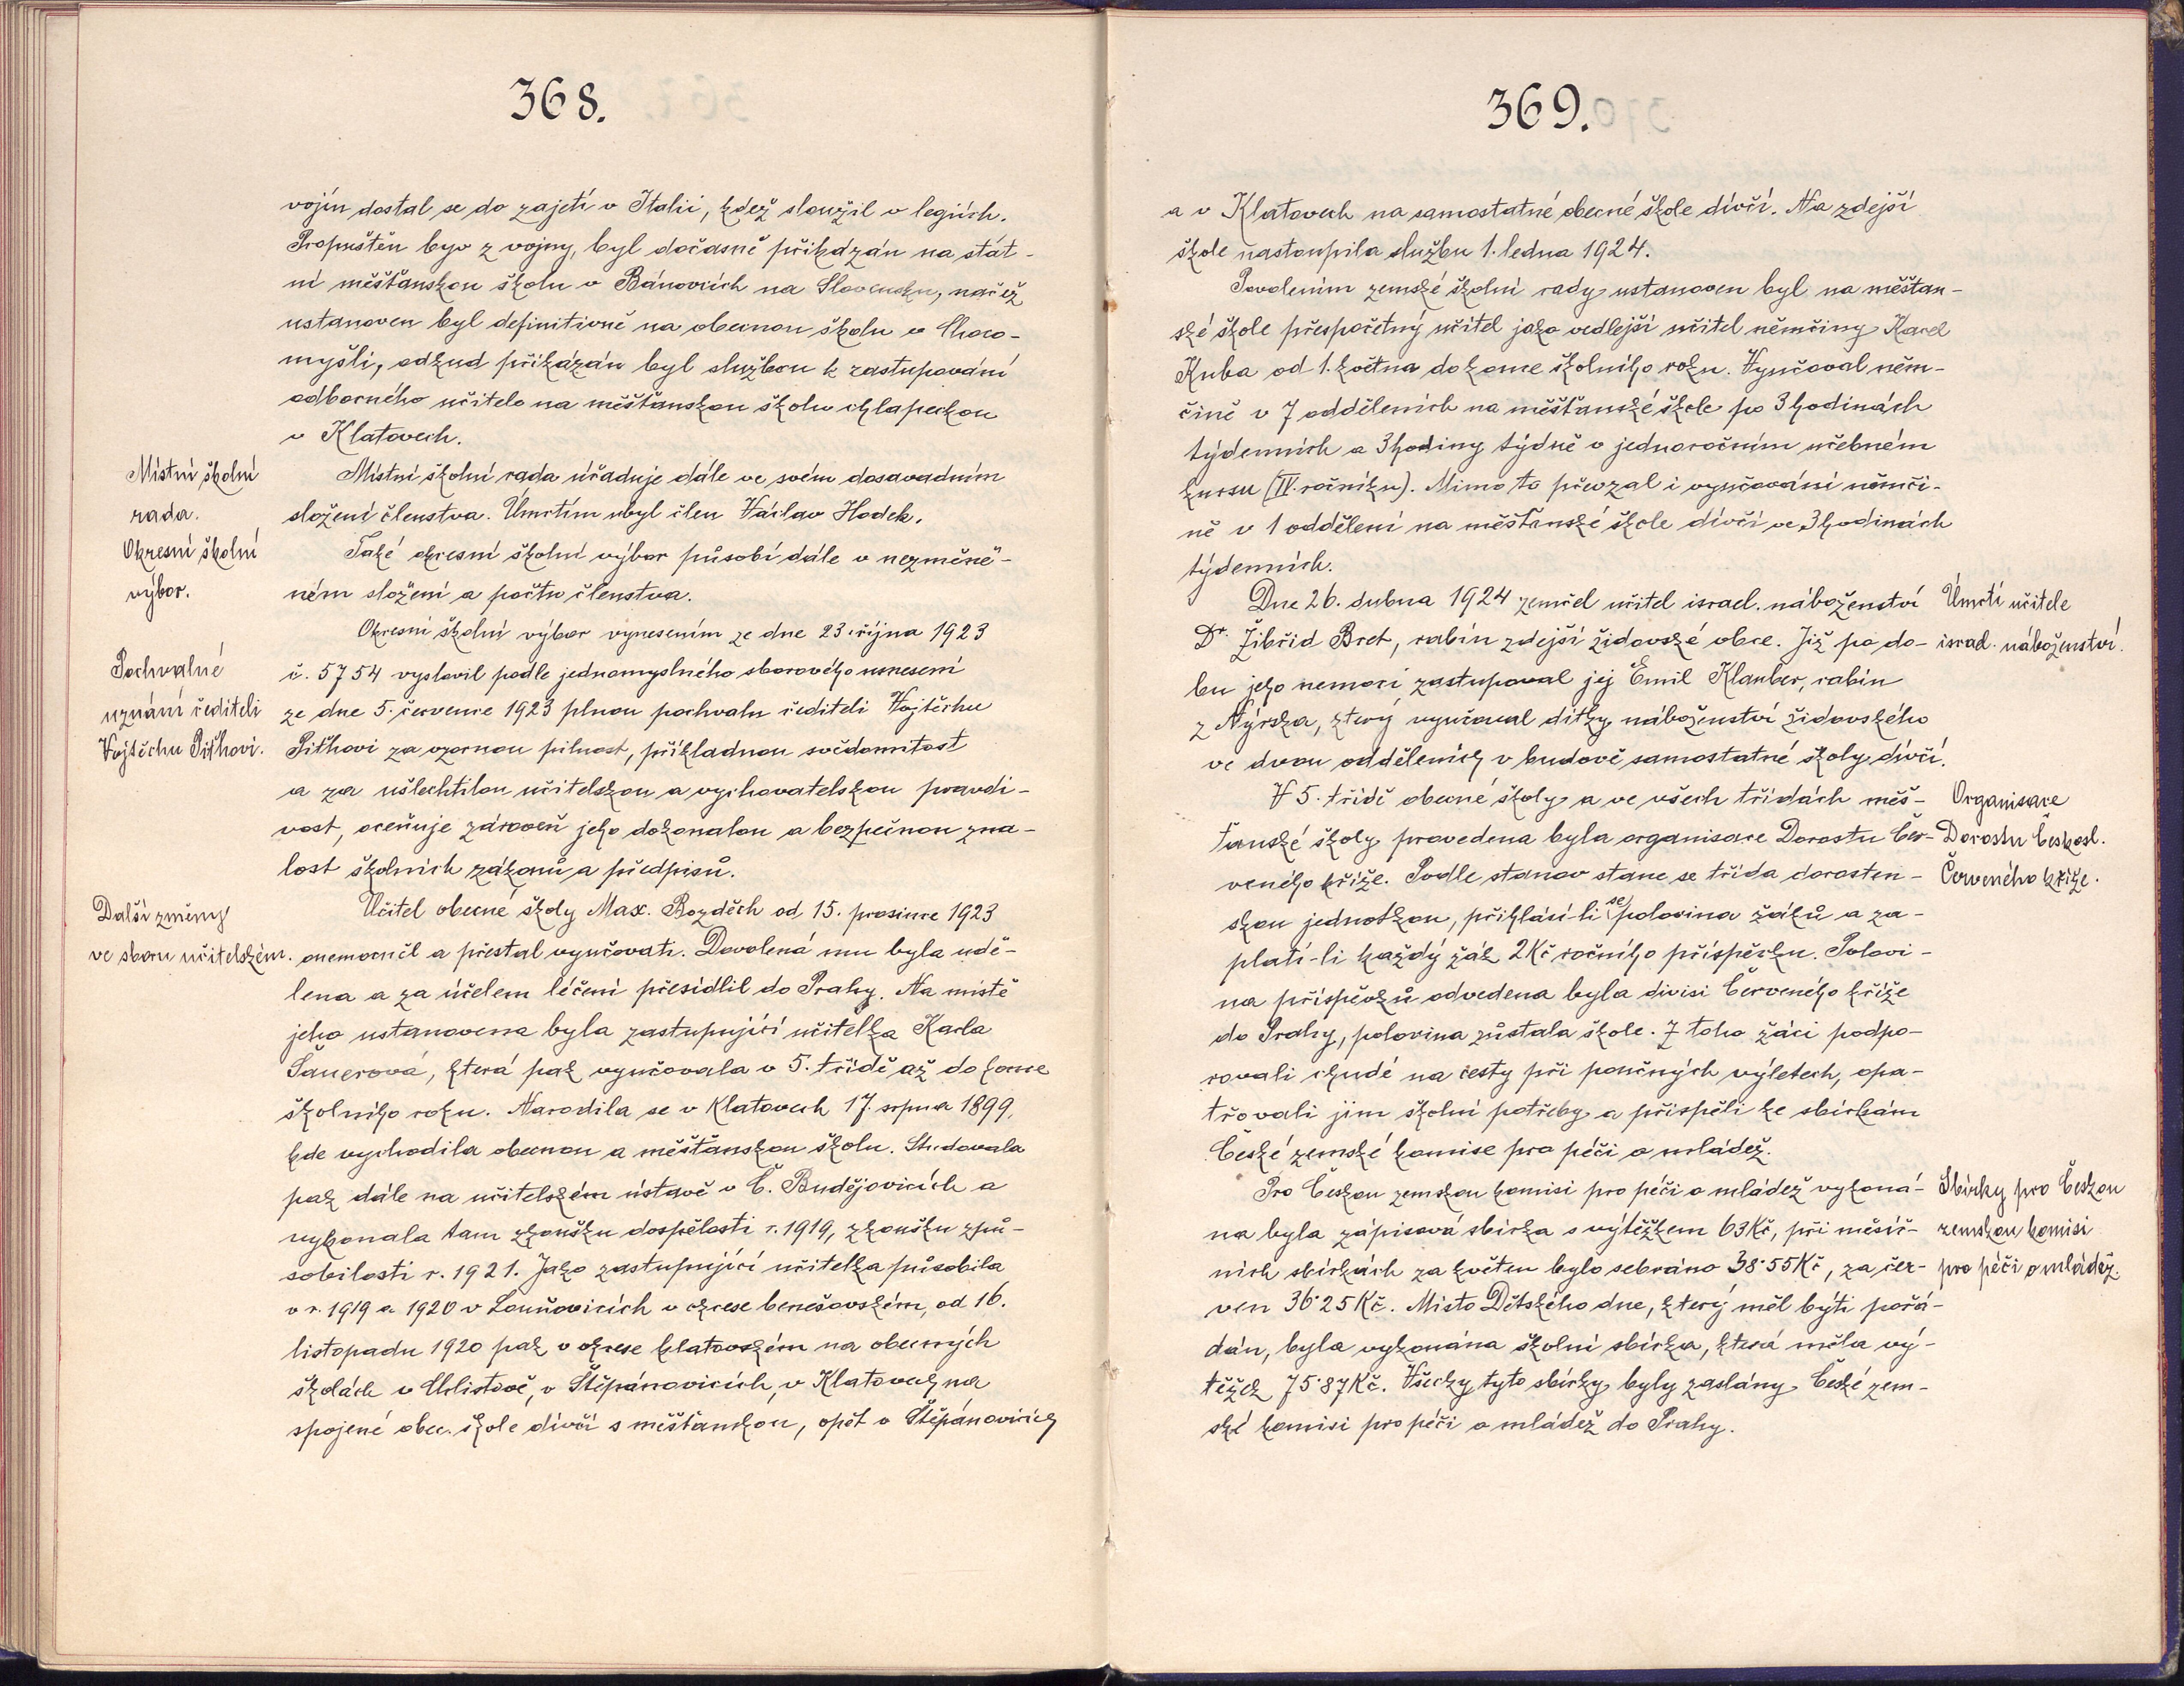 368.
vojín dostal se do zajetí v Italii, kdež sloužil v legiích.
Propuštěn byv z vojny, byl dočasně přikázán na stát-
ní měšťanskou školu v Bánovcích na Slovensku, načež
ustanoven byl definitivně na obecnou školu v Choro-
myšli, odkud přikázán byl službou k zastupování
odborného učitele na měšťanskou školu chlapeckou
v Klatovech.
Místní školní
rada.
Místní školní rada úřaduje dále ve svém dosavadním
složení členstva. Úmrtím ubyl člen Václav Hodek.
Okresní školní
výbor.
Také okresní školní výbor působí dále v nezměně-
ném složení a počtu členstva.
Okresní školní výbor vynesením ze dne 23. října 1923
Pochvalné
uznání řediteli
Vojtěchu Piťhovi.
č. 5754 vyslovil podle jednomyslného sborového usnesení
ze dne 5. července 1923 plnou pochvalu řediteli Vojtěchu
Piťhovi za vzornou pilnost, příkladnou svědomitost
a za ušlechtilou učitelskou a vychovatelskou pravdi-
vost, oceňuje zároveň jeho dokonalou a bezpečnou zna-
lost školních zákonů a předpisů.
Další změny
ve sboru učitelském.
Učitel obecné školy Max. Bozděch od 15. prosince 1923
onemocněl a přestal vyučovati. Dovolená mu byla udě-
lena a za účelem léčení přesídlil do Prahy. Na místě
jeho ustanovena byla zastupující učitelka Karla
Šauerová, která pak vyučovala v 5. třídě až do konce
školního roku. Narodila se v Klatovech 17. srpna 1899,
kde vychodila obecnou a měšťanskou školu. Studovala
pak dále na učitelském ústavě v Č. Budějovicích a
vykonala tam zkoušku dospělosti r. 1919, zkoušku způ-
sobilosti r. 1921. Jako zastupující učitelka působila
v r. 1919 a 1920 v Louňovicích v okrese benešovském, od 16.
listopadu 1920 pak v okrese klatovském na obecných
školách v Chlistově, v Štěpánovicích, v Klatovech na
spojené obec. škole dívčí s měšťanskou, opět v Štěpánovicích
369.
a v Klatovech na samostatné obecné škole dívčí. Na zdejší
škole nastoupila službu 1. ledna 1924.
Povolením zemské školní rady ustanoven byl na měšťan-
ské škole přespočetný učitel jako vedlejší učitel němčiny Karel
Kuba od 1. května do konce školního roku. Vyučoval něm-
čině v 7 odděleních na měšťanské škole po 3 hodinách
týdenních a 3 hodiny týdně v jednoročním učebném
kursu (IV. ročníku). Mimo to převzal i vyučování němči-
ně v 1 oddělení na měšťanské škole dívčí ve 3 hodinách
týdenních.
Dne 26. dubna 1924 zemřel učitel israel. náboženství
Dr. Žibřid Bret, rabín zdejší židovské obce. Již po do-
bu jeho nemoci zastupoval jej Emil Klauber, rabín
z Nýrska, který vyučoval dítky náboženství židovského
ve dvou odděleních v budově samostatné školy dívčí.
Úmrtí učitele
israel. náboženství.
V 5. třídě obecné školy a ve všech třídách měš-
ťanské školy provedena byla organisace Dorostu Čer-
veného kříže. Podle stanov stane se třída dorosten-
skou jednotkou, přihlásí-li se polovina žáků a za-
platí-li každý žák 2 Kč ročního příspěvku. Polovi-
na příspěvků odvedena byla divisi Červeného kříže
do Prahy, polovina zůstala škole. Z toho žáci podpo-
rovali chudé na cesty při poučných výletech, opa-
třovali jim školní potřeby a přispěli ke sbírkám
České zemské komise pro péči o mládež.
Organisace
Dorostu Českosl.
Červeného kříže.
Pro Českou zemskou komisi pro péči o mládež vykoná-
na byla zápisová sbírka s výtěžkem 63 Kč, při měsíč-
ních sbírkách za květen bylo sebráno 38·55 Kč, za čer-
ven 36·25 Kč. Místo Dětského dne, který měl býti pořá-
dán, byla vykonána školní sbírka, která měla vý-
těžek 75·87 Kč. Všecky tyto sbírky byly zaslány České zem-
ské komisi pro péči o mládež do Prahy.
Sbírky pro Českou
zemskou komisi
pro péči o mládež.